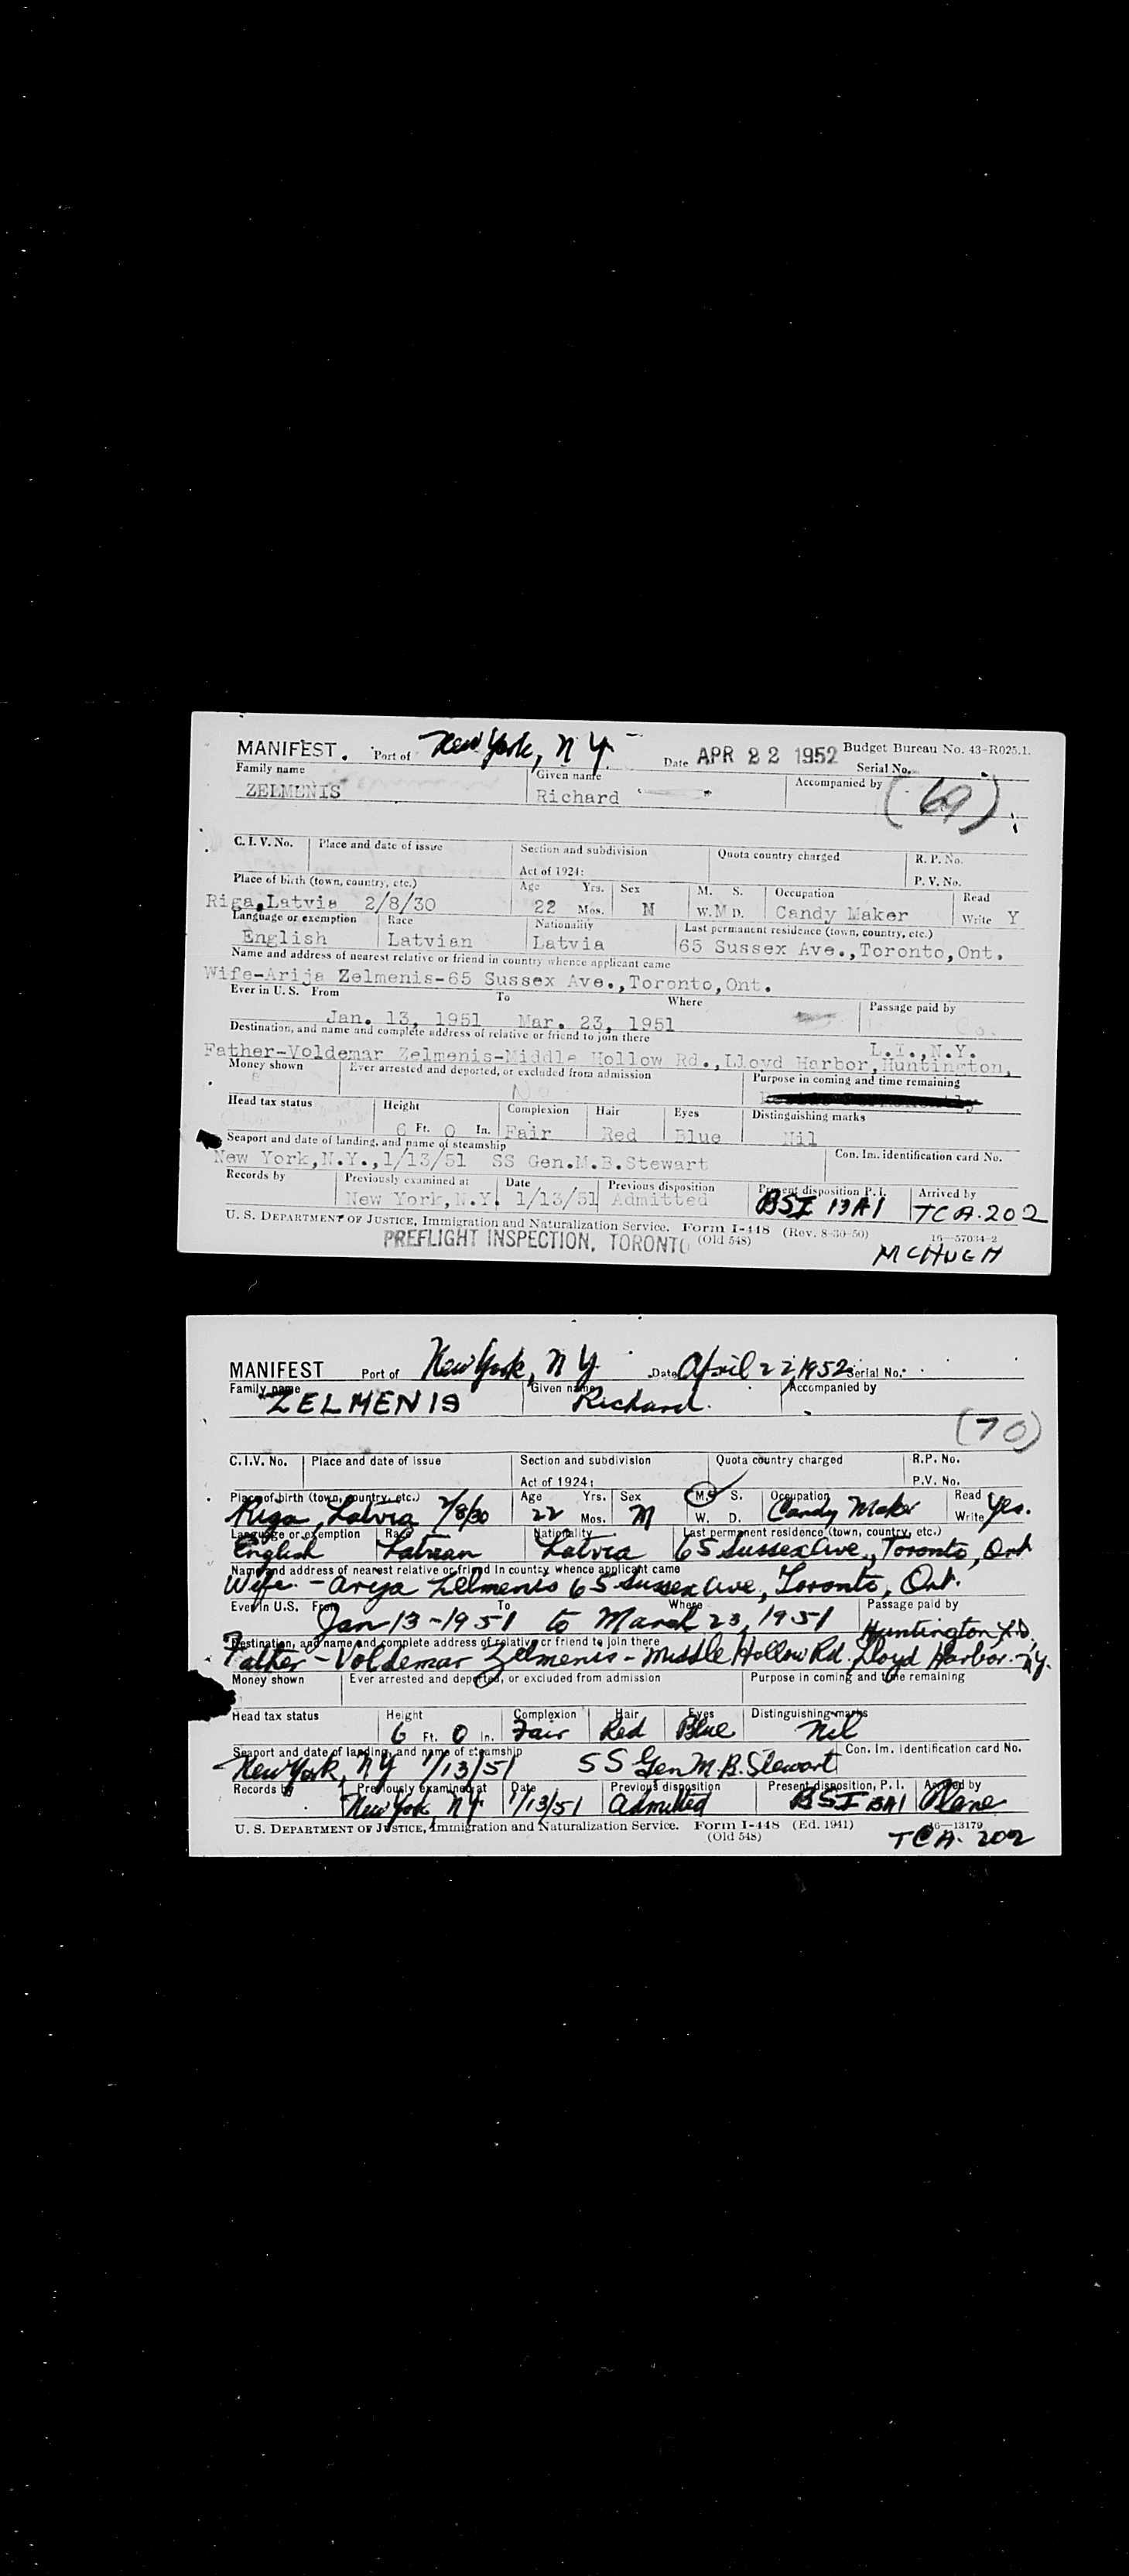 MANIFEST. Port of New York, N.Y. Date APR 22 1952 Budget Bureau No. 43-R025.1.
Family name Given name Accompanied by Serial No.
ZELMENIS Richard (69)
C. I. V. No. Place and date of issue Section and subdivision Quota country charged R. P. No.
Act of 1924: P. V. No.
Place of birth (town, country, etc.) Age Yrs. Sex M. S. Occupation Read
Riga, Latvia 2/8/30 22 Mos. M W. M D. Candy Maker Write Y
Language or exemption Race Nationality Last permanent residence (town, country, etc.)
English Latvian Latvia 65 Sussex Ave., Toronto, Ont.
Name and address of nearest relative or friend in country whence applicant came
Wife-Arija Zelmenis-65 Sussex Ave., Toronto, Ont.
Ever in U. S. From To Where Passage paid by
Jan. 13, 1951 Mar. 23, 1951
Destination, and name and complete address of relative or friend to join there L.I., N.Y.
Father-Voldemar Zelmenis-Middle Hollow Rd., Lloyd Harbor, Huntington,
Money shown Ever arrested and deported, or excluded from admission Purpose in coming and time remaining
No
Head tax status Height Complexion Hair Eyes Distinguishing marks
6 Ft. 0 In. Fair Red Blue Nil
Seaport and date of landing, and name of steamship Con. Im. identification card No.
New York, N.Y., 1/13/51 SS Gen. M. B. Stewart
Records by Previously examined at Date Previous disposition Present disposition P. I. Arrived by
New York, N.Y. 1/13/51 Admitted BSI 13A1 TCA. 202
U. S. DEPARTMENT OF JUSTICE, Immigration and Naturalization Service. Form I-448 (Rev. 8-30-50) 16—57034-2
(Old 548)
PREFLIGHT INSPECTION, TORONTO MCHUGH
MANIFEST Port of New York, N Y. Date April 22, 1952 Serial No.
Family name Given name Accompanied by
ZELMENIS Richard.
(70)
C.I.V. No. Place and date of issue Section and subdivision Quota country charged R.P. No.
Act of 1924: P.V. No.
Place of birth (town, country, etc.) Age Yrs. Sex M. S. Occupation Read
Riga, Latvia 2/8/30 22 Mos. M W. D. Candy Maker Write Yes.
Language or exemption Race Nationality Last permanent residence (town, country, etc.)
English Latvian Latvia 65 Sussex Ave., Toronto, Ont
Name and address of nearest relative or friend in country whence applicant came
Wife - Arija Zelmenis 65 Sussex Ave, Toronto, Ont.
Ever in U.S. From To Where Passage paid by
Jan-13-1951 to March 23, 1951 Huntington
Destination, and name and complete address of relative or friend to join there
Father - Voldemar Zelmenis - Middle Hollow Rd. Lloyd Harbor. N.Y.
Money shown Ever arrested and deported, or excluded from admission Purpose in coming and time remaining
Head tax status Height Complexion Hair Eyes Distinguishing marks
6 Ft. 0 In. Fair Red Blue Nil
Seaport and date of landing, and name of steamship Con. Im. identification card No.
New York, N Y 1/13/51 SS Gen M. B. Stewart
Records by Previously examined at Date Previous disposition Present disposition, P. I. Arrived by
New York, N.Y. 1/13/51 Admitted BSI 13A1 Plane
U. S. DEPARTMENT OF JUSTICE, Immigration and Naturalization Service. Form I-448 (Ed. 1941) 16—13179
(Old 548) TCA. 202